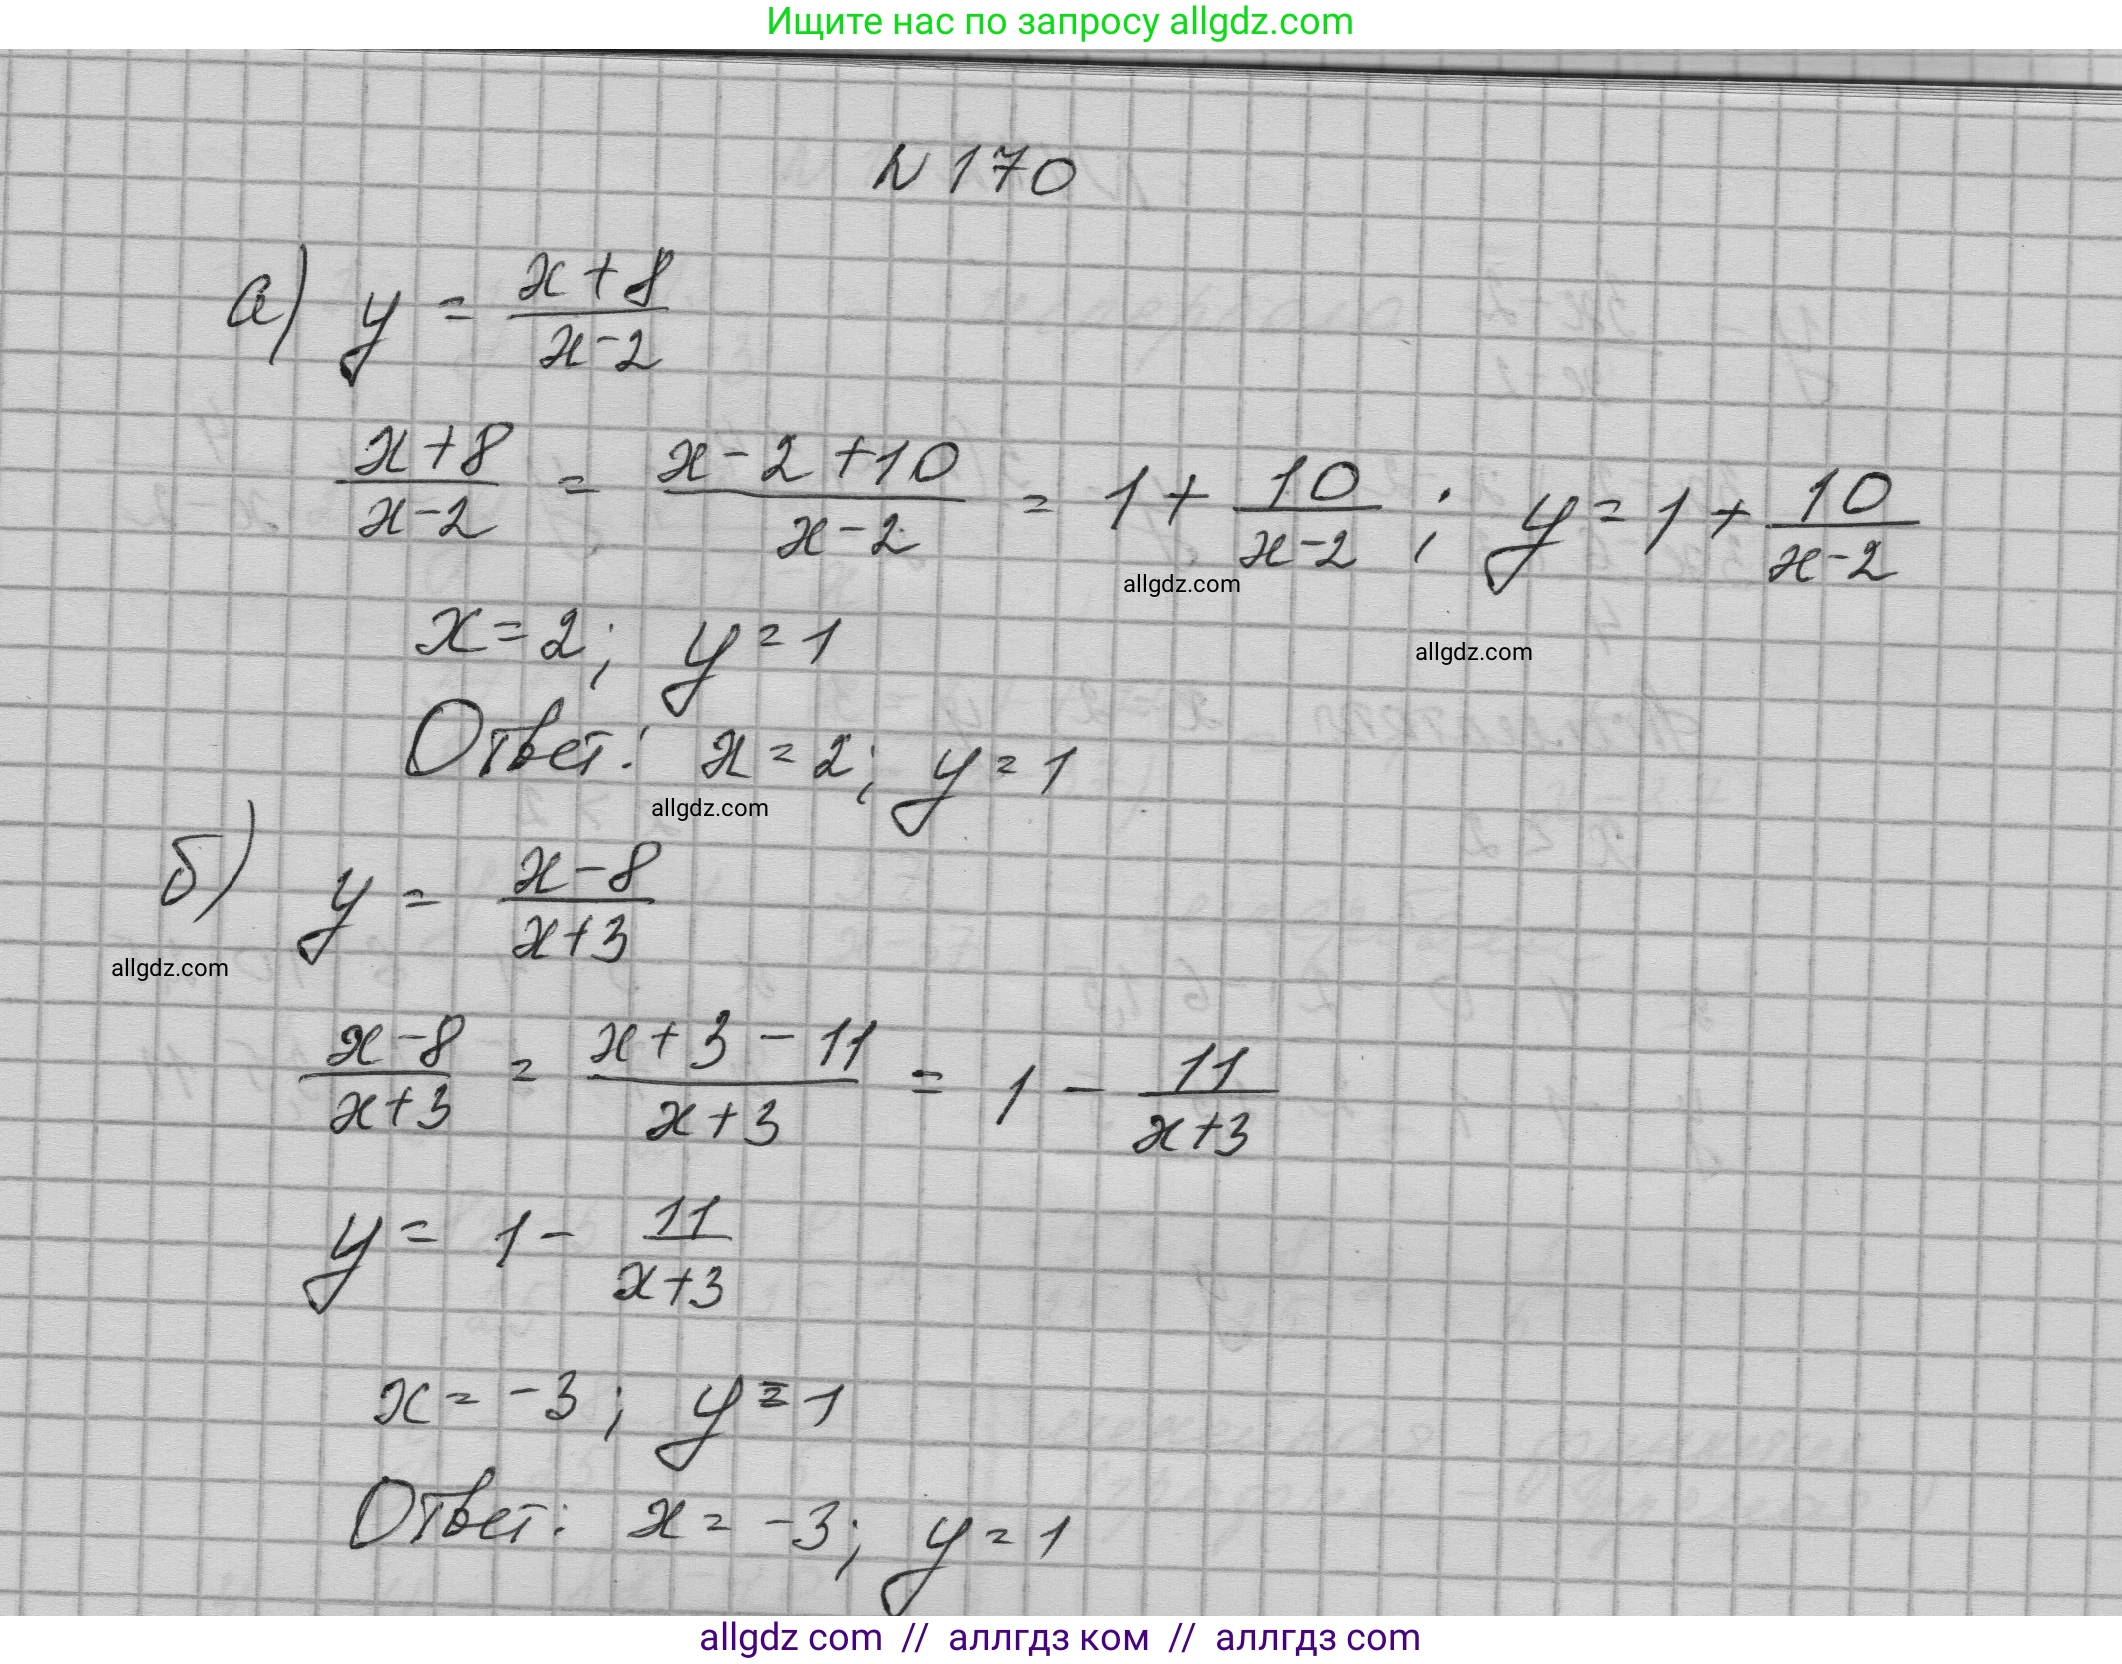 Ищите нас по запросу allgdz.com
N 170
а) y = (x+8)/(x-2)
(x+8)/(x-2) = (x-2+10)/(x-2) = 1 + 10/(x-2) ; y = 1 + 10/(x-2)
allgdz.com
x = 2; y = 1
allgdz.com
Ответ: x = 2; y = 1
allgdz.com
б) y = (x-8)/(x+3)
allgdz.com
(x-8)/(x+3) = (x+3-11)/(x+3) = 1 - 11/(x+3)
y = 1 - 11/(x+3)
x = -3; y = 1
Ответ: x = -3; y = 1
allgdz com // аллгдз ком // аллгдз com